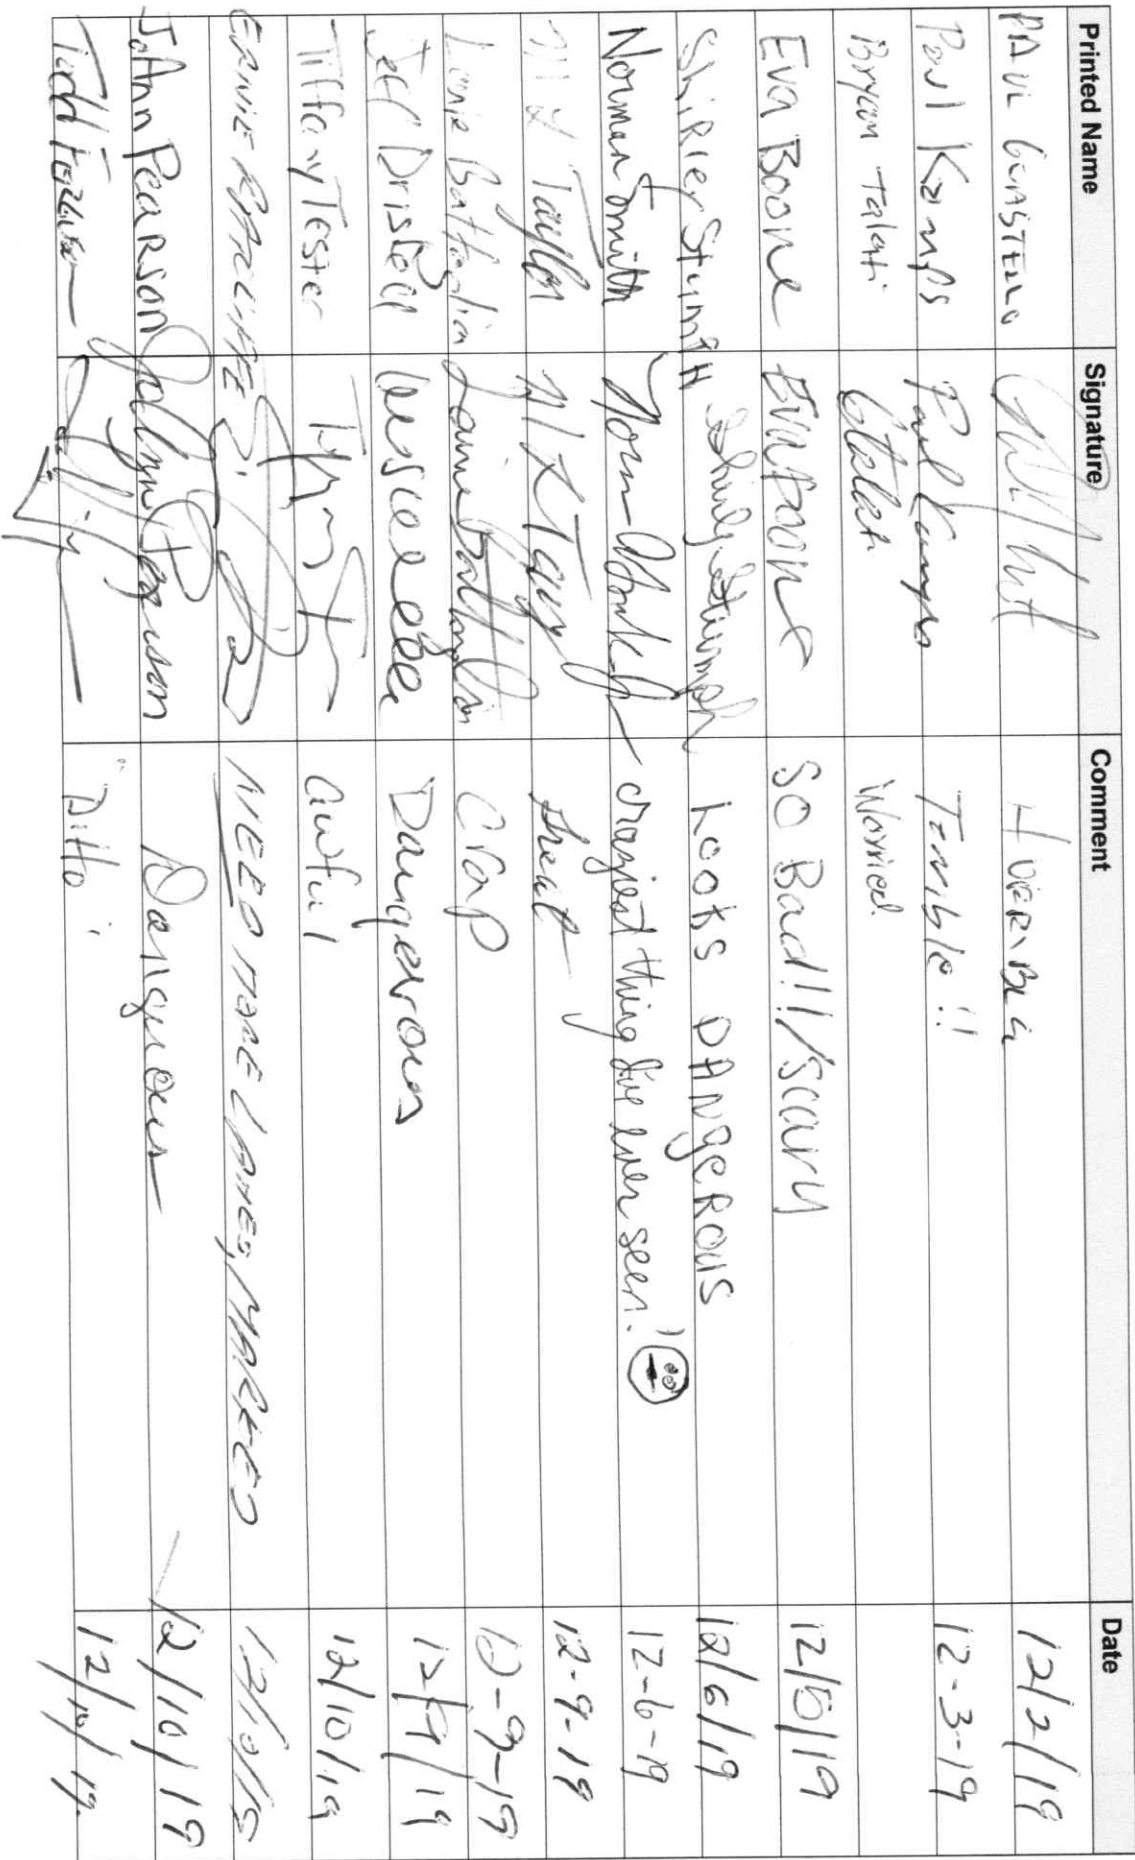 Printed Name Signature Comment Date
PAUL HORRIBLE 12/2/19
Paul Kamps Paul Kamps Terrible!! 12-3-19
Bryan Talati BTalati Worried.
Eva Boone Eva Boone SO Bad!!/scary 12/5/19
Shirley Stumph Looks DANgeROUS 12/6/19
Norman Smith craziest thing I've ever seen! 12-6-19
Taylor 12-9-19
Battaglia Crap 12-9-19
Jeff Driskell Dangerous 12/9/19
Tiffany Tester awful 12/10/19
ERNIE RATCLIFFE NEED MORE LANES, MARKED 12/10/19
JoAnn Pearson JoAnn Pearson Dangerous 12/10/19
Todd "Ditto" 12/10/19